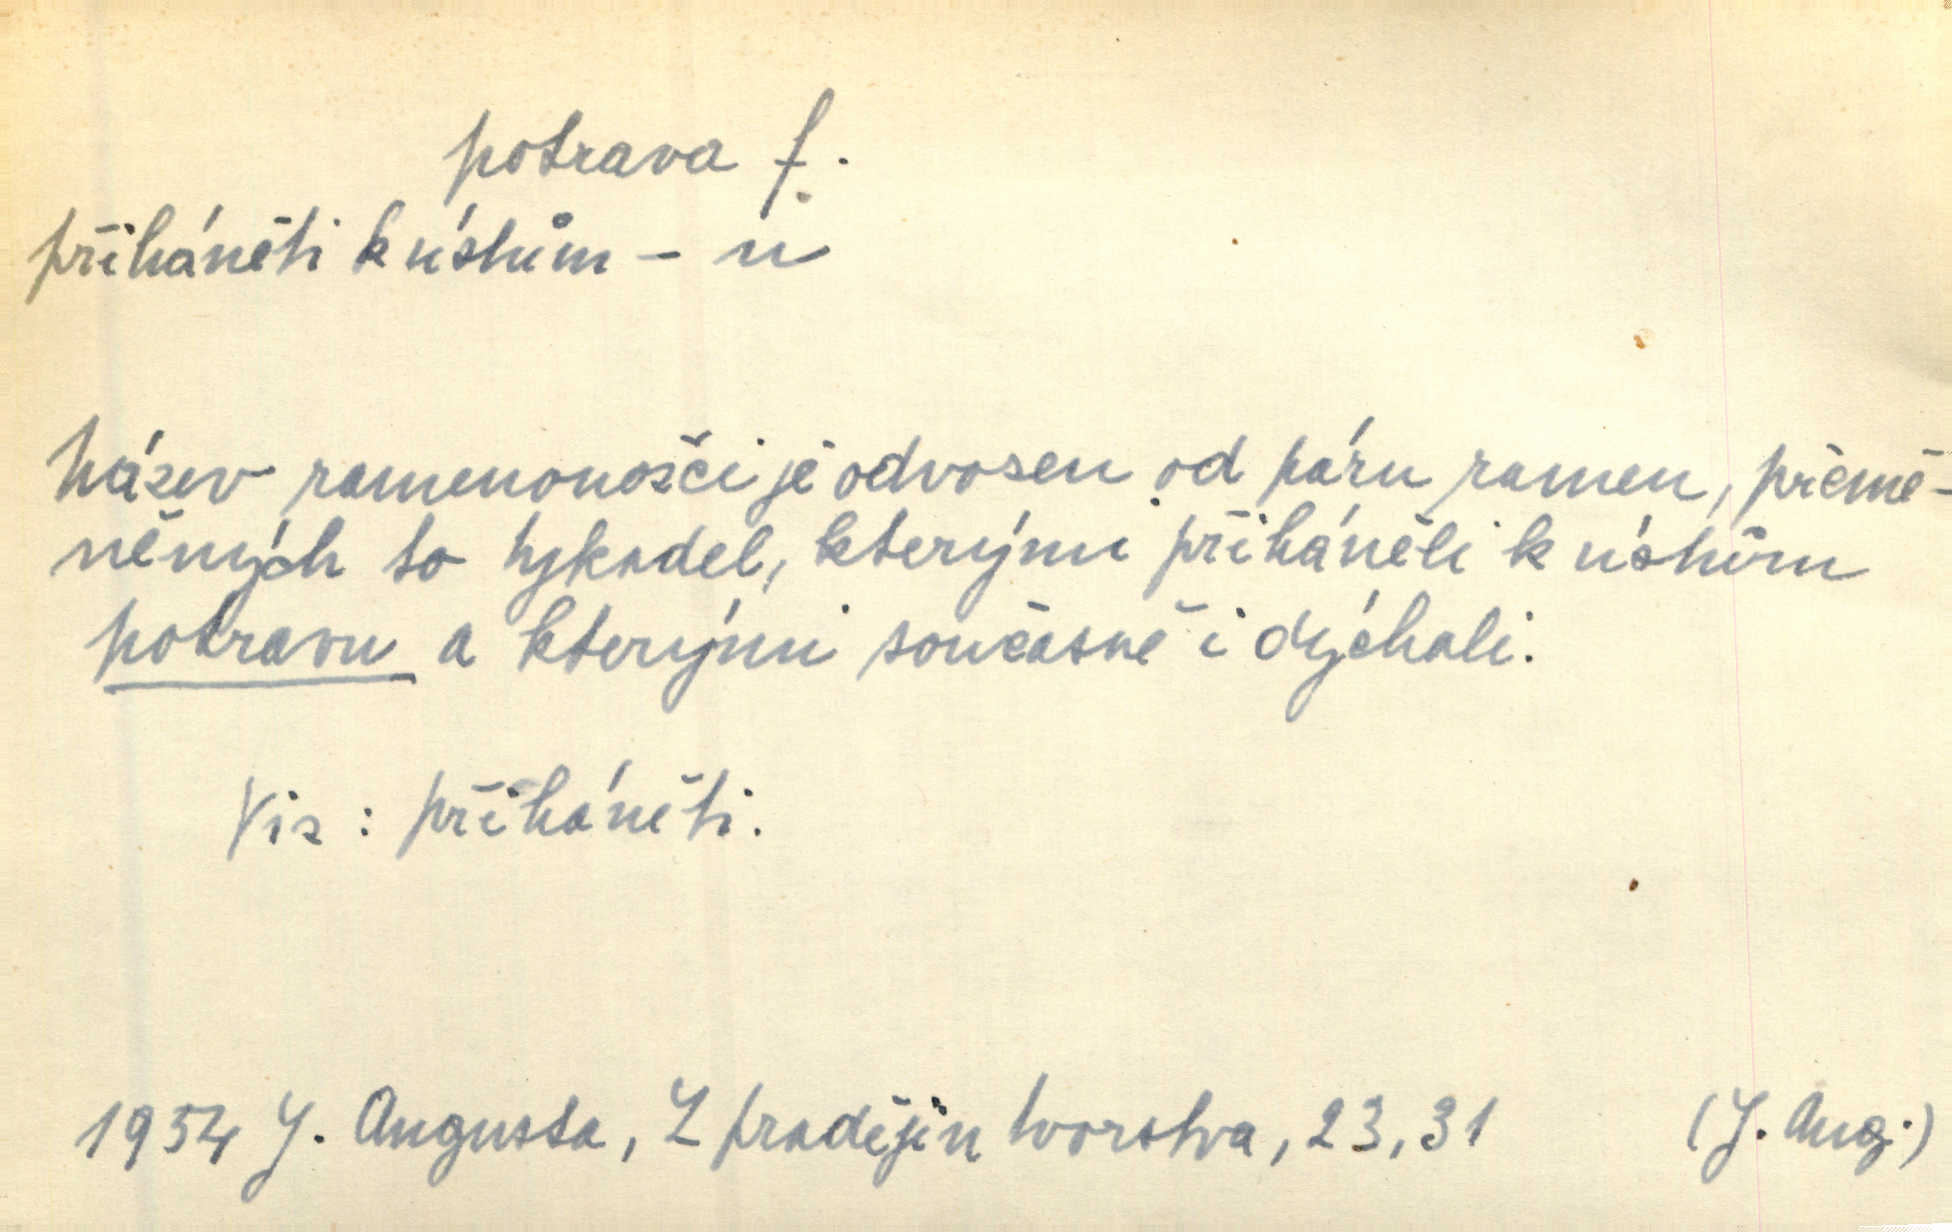 potrava f.
přiháněti k ústům – u
Název ramenonožci je odvozen od páru ramen, přemě-
něných to tykadel, kterými přiháněli k ústům
potravu a kterými současně i dýchali.
Viz: přiháněti.
1954 J. Augusta, Z pradějin tvorstva, 23, 31 (J. Aug.)